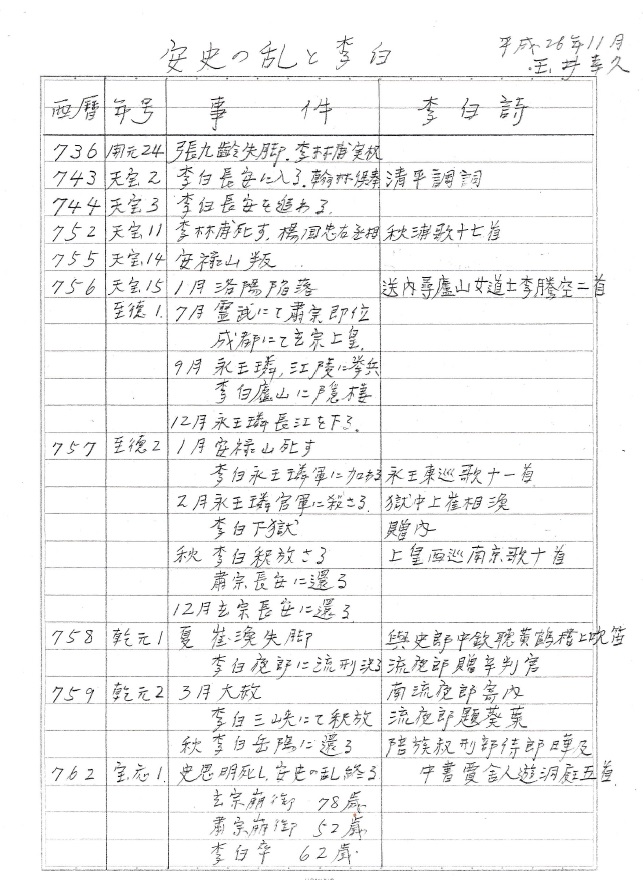 安史の乱と李白
平成26年11月
玉井幸久
西暦 年号 事件 李白詩
736 開元24 張九齢失脚、李林甫実权
743 天宝2 李白長安に入る、翰林供奉 清平調詞
744 天宝3 李白長安を追わる
752 天宝11 李林甫死す、楊国忠右丞相 秋浦歌十七首
755 天宝14 安禄山叛
756 天宝15 1月 洛陽陥落 送内尋廬山女道士李騰空二首
至徳1 7月 霊武にて粛宗即位
成都にて玄宗上皇
9月 永王璘,江陵に挙兵
李白廬山に隠棲
12月永王璘長江を下る
757 至徳2 1月安禄山死す
李白永王璘軍に加わる 永王東巡歌十一首
2月永王璘官軍に殺さる 獄中上崔相渙
李白下獄 贈内
秋 李白釈放さる 上皇西巡南京歌十首
粛宗長安に還る
12月玄宗長安に還る
758 乾元1 夏 崔渙失脚 與史郎中欽聴黄鶴楼上吹笛
李白夜郎に流刑決る 流夜郎贈辛判官
759 乾元2 3月大赦 南流夜郎寄内
李白三峡にて釈放 流夜郎題葵葉
秋 李白岳陽に還る 陪族叔刑部侍郎曄及
762 宝応1 史思明死し、安史の乱終る 中書賈舎人遊洞庭五首
玄宗崩御 78歳
粛宗崩御 52歳
李白卒 62歳